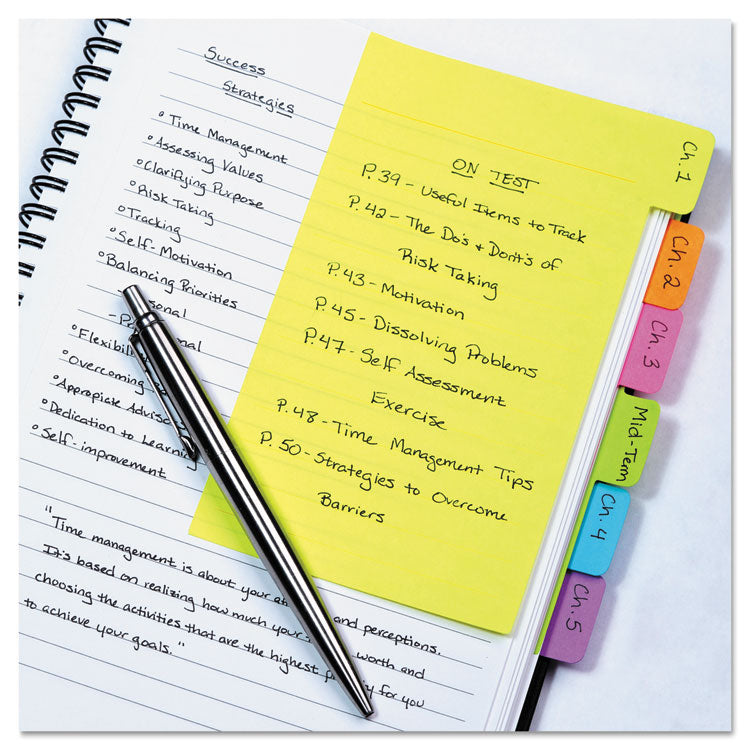 Success
Strategies
° Time Management
° Assessing Values
° Clarifying Purpose
° Risk Taking
° Tracking
° Self-Motivation
° Balancing Priorities
sonal
- P nal
° Flexibil
° Overcoming
° Appropiate Adviso
° Dedication to Learning
° Self-improvement
"Time management is about your at and perceptions.
It's based on realizing how much your worth and
choosing the activities that are the highest p y for you
to achieve your goals."
ON TEST
P. 39 - Useful Items to Track
P. 42 - The Do's & Dont's of
Risk Taking
P. 43 - Motivation
P. 45 - Dissolving Problems
P. 47 - Self Assessment
Exercise
P. 48 - Time Management Tips
P. 50 - Strategies to Overcome
Barriers
Ch. 1
Ch. 2
Ch. 3
Mid-Term
Ch. 4
Ch. 5